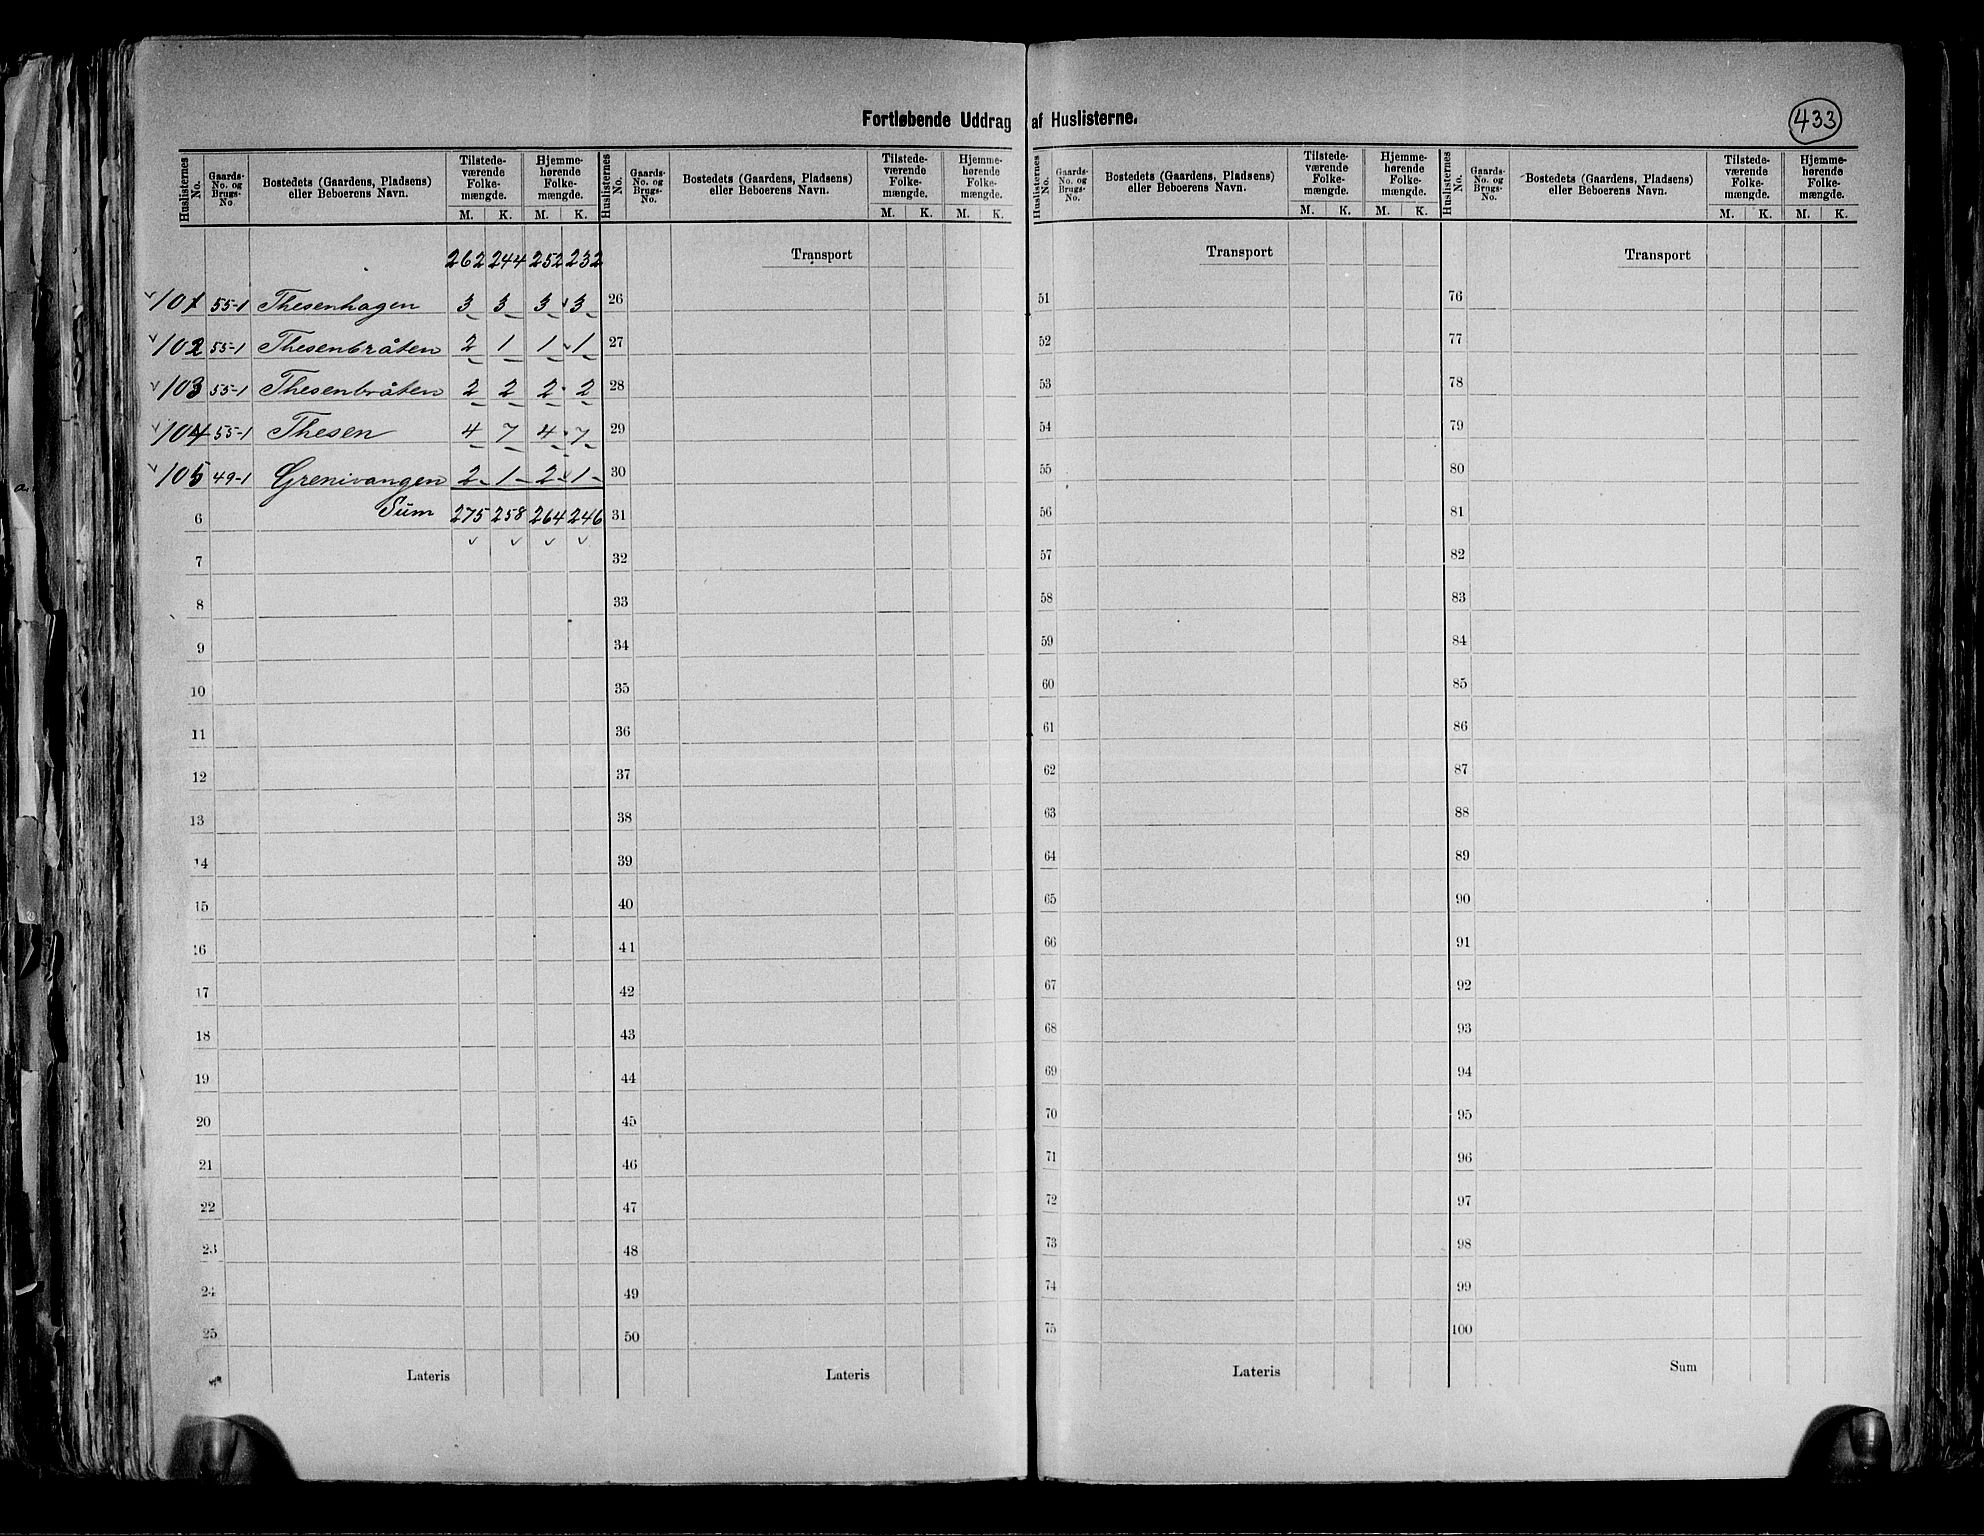 Fortløbende Uddrag af Huslisterne.
433
Huslisternes No. Gaards-No. og Brugs-No. Bostedets (Gaardens, Pladsens) eller Beboerens Navn. Tilstedeværende Folkemængde. M. K. Hjemmehørende Folkemængde. M. K.
Huslisternes No. Gaards-No. og Brugs-No. Bostedets (Gaardens, Pladsens) eller Beboerens Navn. Tilstedeværende Folkemængde. M. K. Hjemmehørende Folkemængde. M. K.
Huslisternes No. Gaards-No. og Brugs-No. Bostedets (Gaardens, Pladsens) eller Beboerens Navn. Tilstedeværende Folkemængde. M. K. Hjemmehørende Folkemængde. M. K.
Huslisternes No. Gaards-No. og Brugs-No. Bostedets (Gaardens, Pladsens) eller Beboerens Navn. Tilstedeværende Folkemængde. M. K. Hjemmehørende Folkemængde. M. K.
262 244 252 232
101 55-1 Thesenhagen 3 3 3 3
102 55-1 Thesenbråten 2 1 1 1
103 55-1 Thesenbråten 2 2 2 2
104 55-1 Thesen 4 7 4 7
105 49-1 Grenivangen 2 1 2 1
6 Sum 275 258 264 246
7
8
9
10
11
12
13
14
15
16
17
18
19
20
21
22
23
24
25
Lateris
Transport
26
27
28
29
30
31
32
33
34
35
36
37
38
39
40
41
42
43
44
45
46
47
48
49
50
Lateris
Transport
51
52
53
54
55
56
57
58
59
60
61
62
63
64
65
66
67
68
69
70
71
72
73
74
75
Lateris
Transport
76
77
78
79
80
81
82
83
84
85
86
87
88
89
90
91
92
93
94
95
96
97
98
99
100
Sum